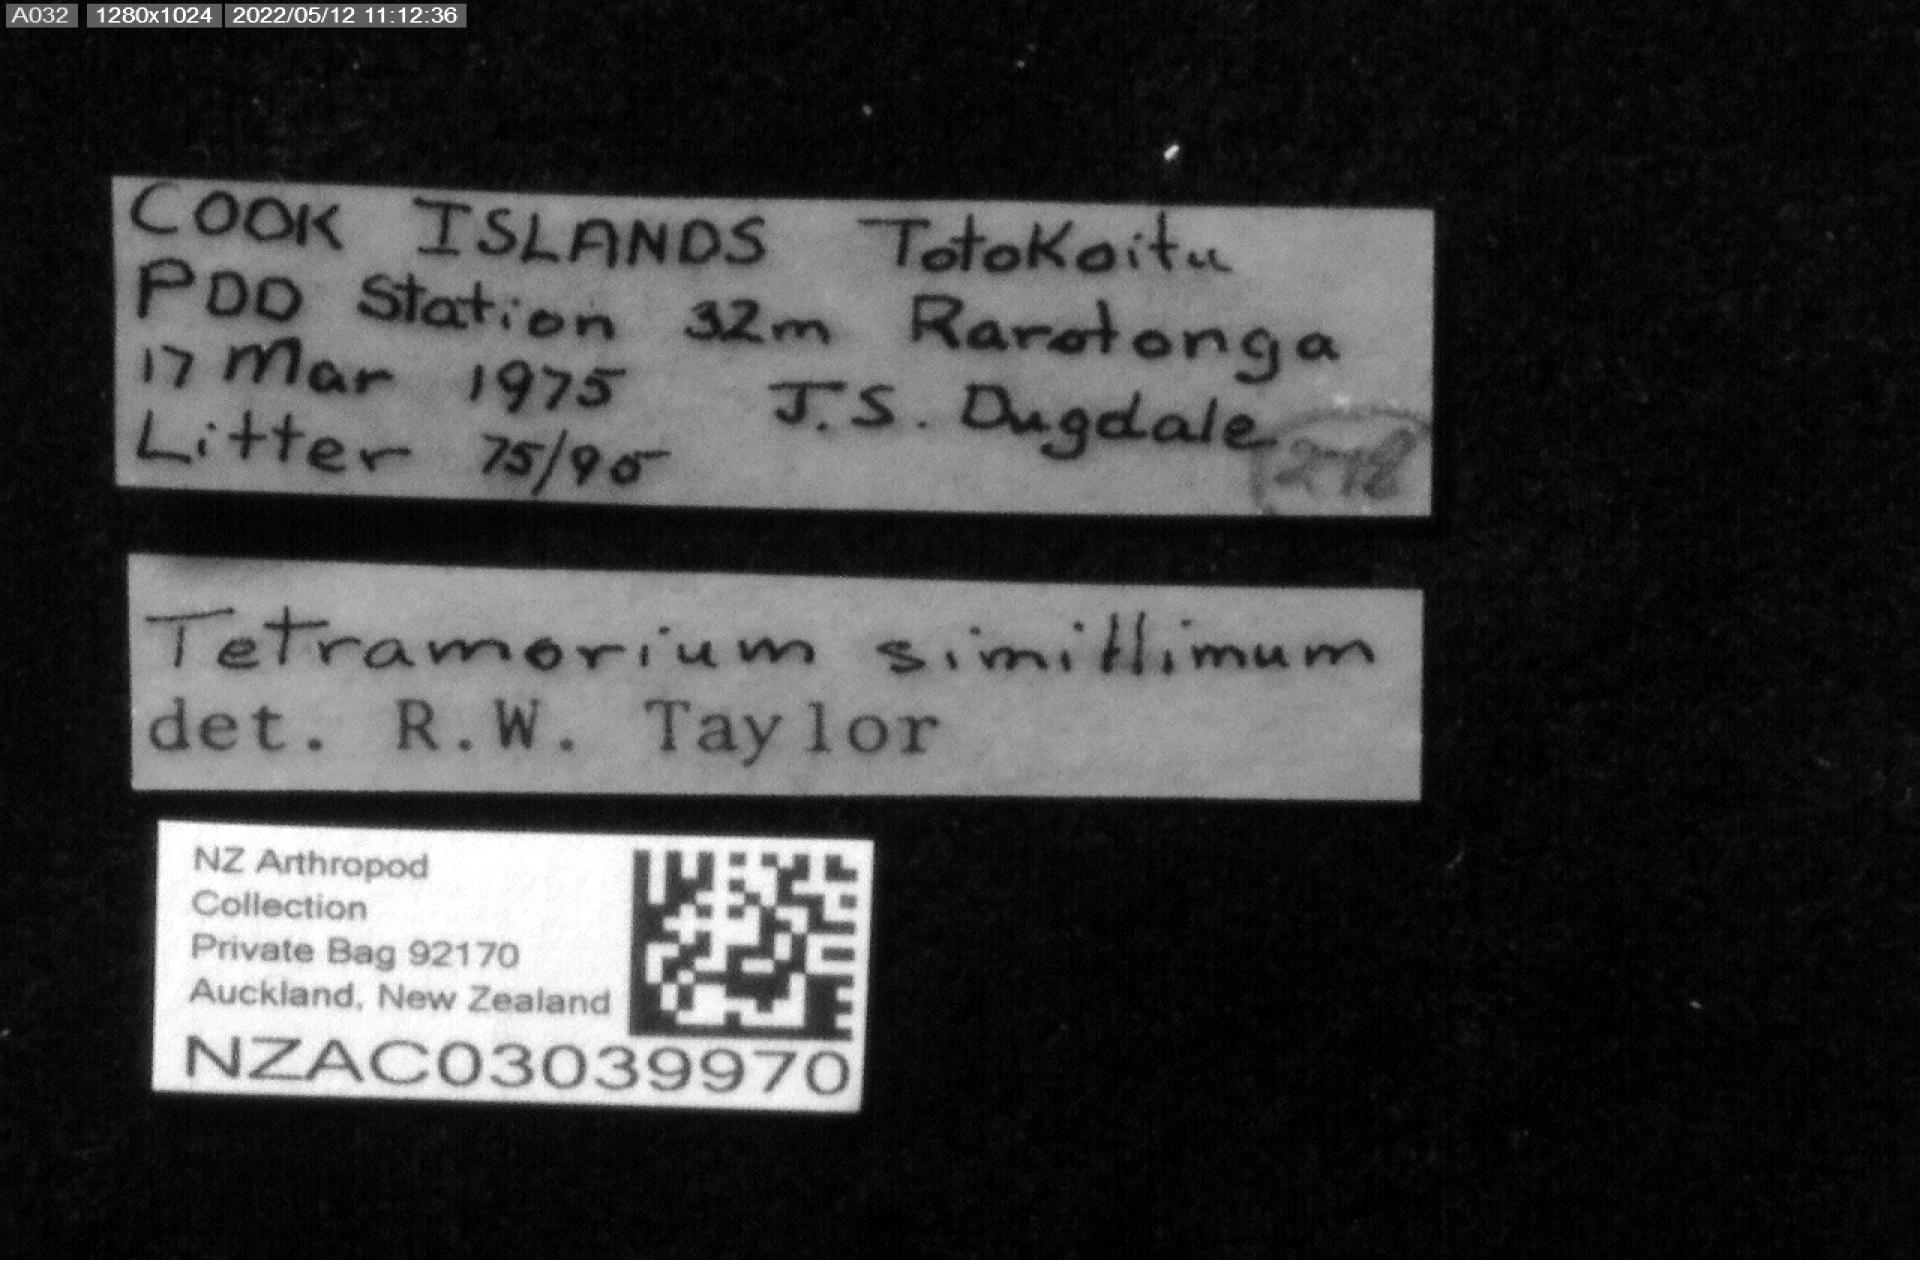 A032 1280x1024 2022/05/12 11:12:36
COOK ISLANDS Totokoitu
PDD Station 32m Rarotonga
17 Mar 1975 J.S. Dugdale
Litter 75/95
278
Tetramorium simillimum
det. R.W. Taylor
NZ Arthropod
Collection
Private Bag 92170
Auckland, New Zealand
NZAC03039970